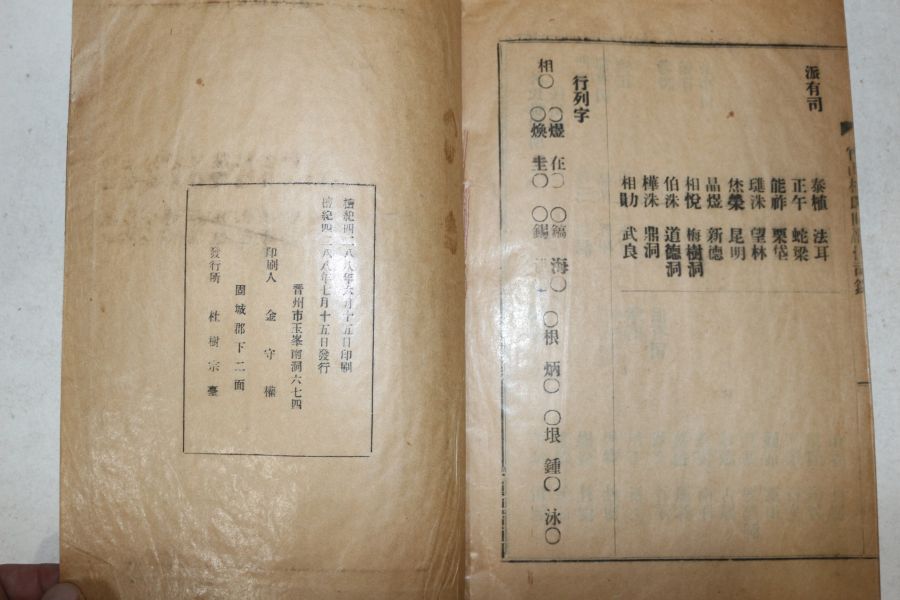 派有司
泰植 法耳
正午 蛇梁
能祚 栗垈
璡洙 望林
烋榮 昆明
晶煜 新德
相悅 梅樹洞
伯洙 道德洞
樺洙 鼎洞
相勛 武良
行列字
相〇 〇煜 在〇 〇鎬 海〇 〇根 炳〇 〇垠 鍾〇 泳〇
〇煥 圭〇 〇錫
檀紀四二八八年六月十五日印刷
檀紀四二八八年七月十五日發行
晋州市玉峯南洞六七四
印刷人 金守權
固城郡下二面
發行所 杜樹宗臺